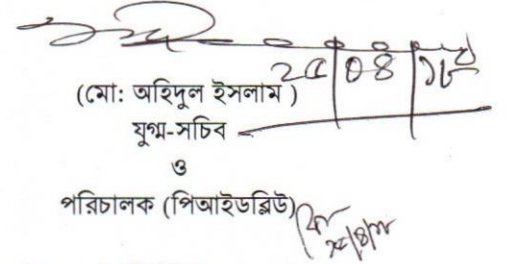 (মো: অহিদুল ইসলাম )
যুগ্ম-সচিব
ও
পরিচালক (পিআইডব্লিউ)